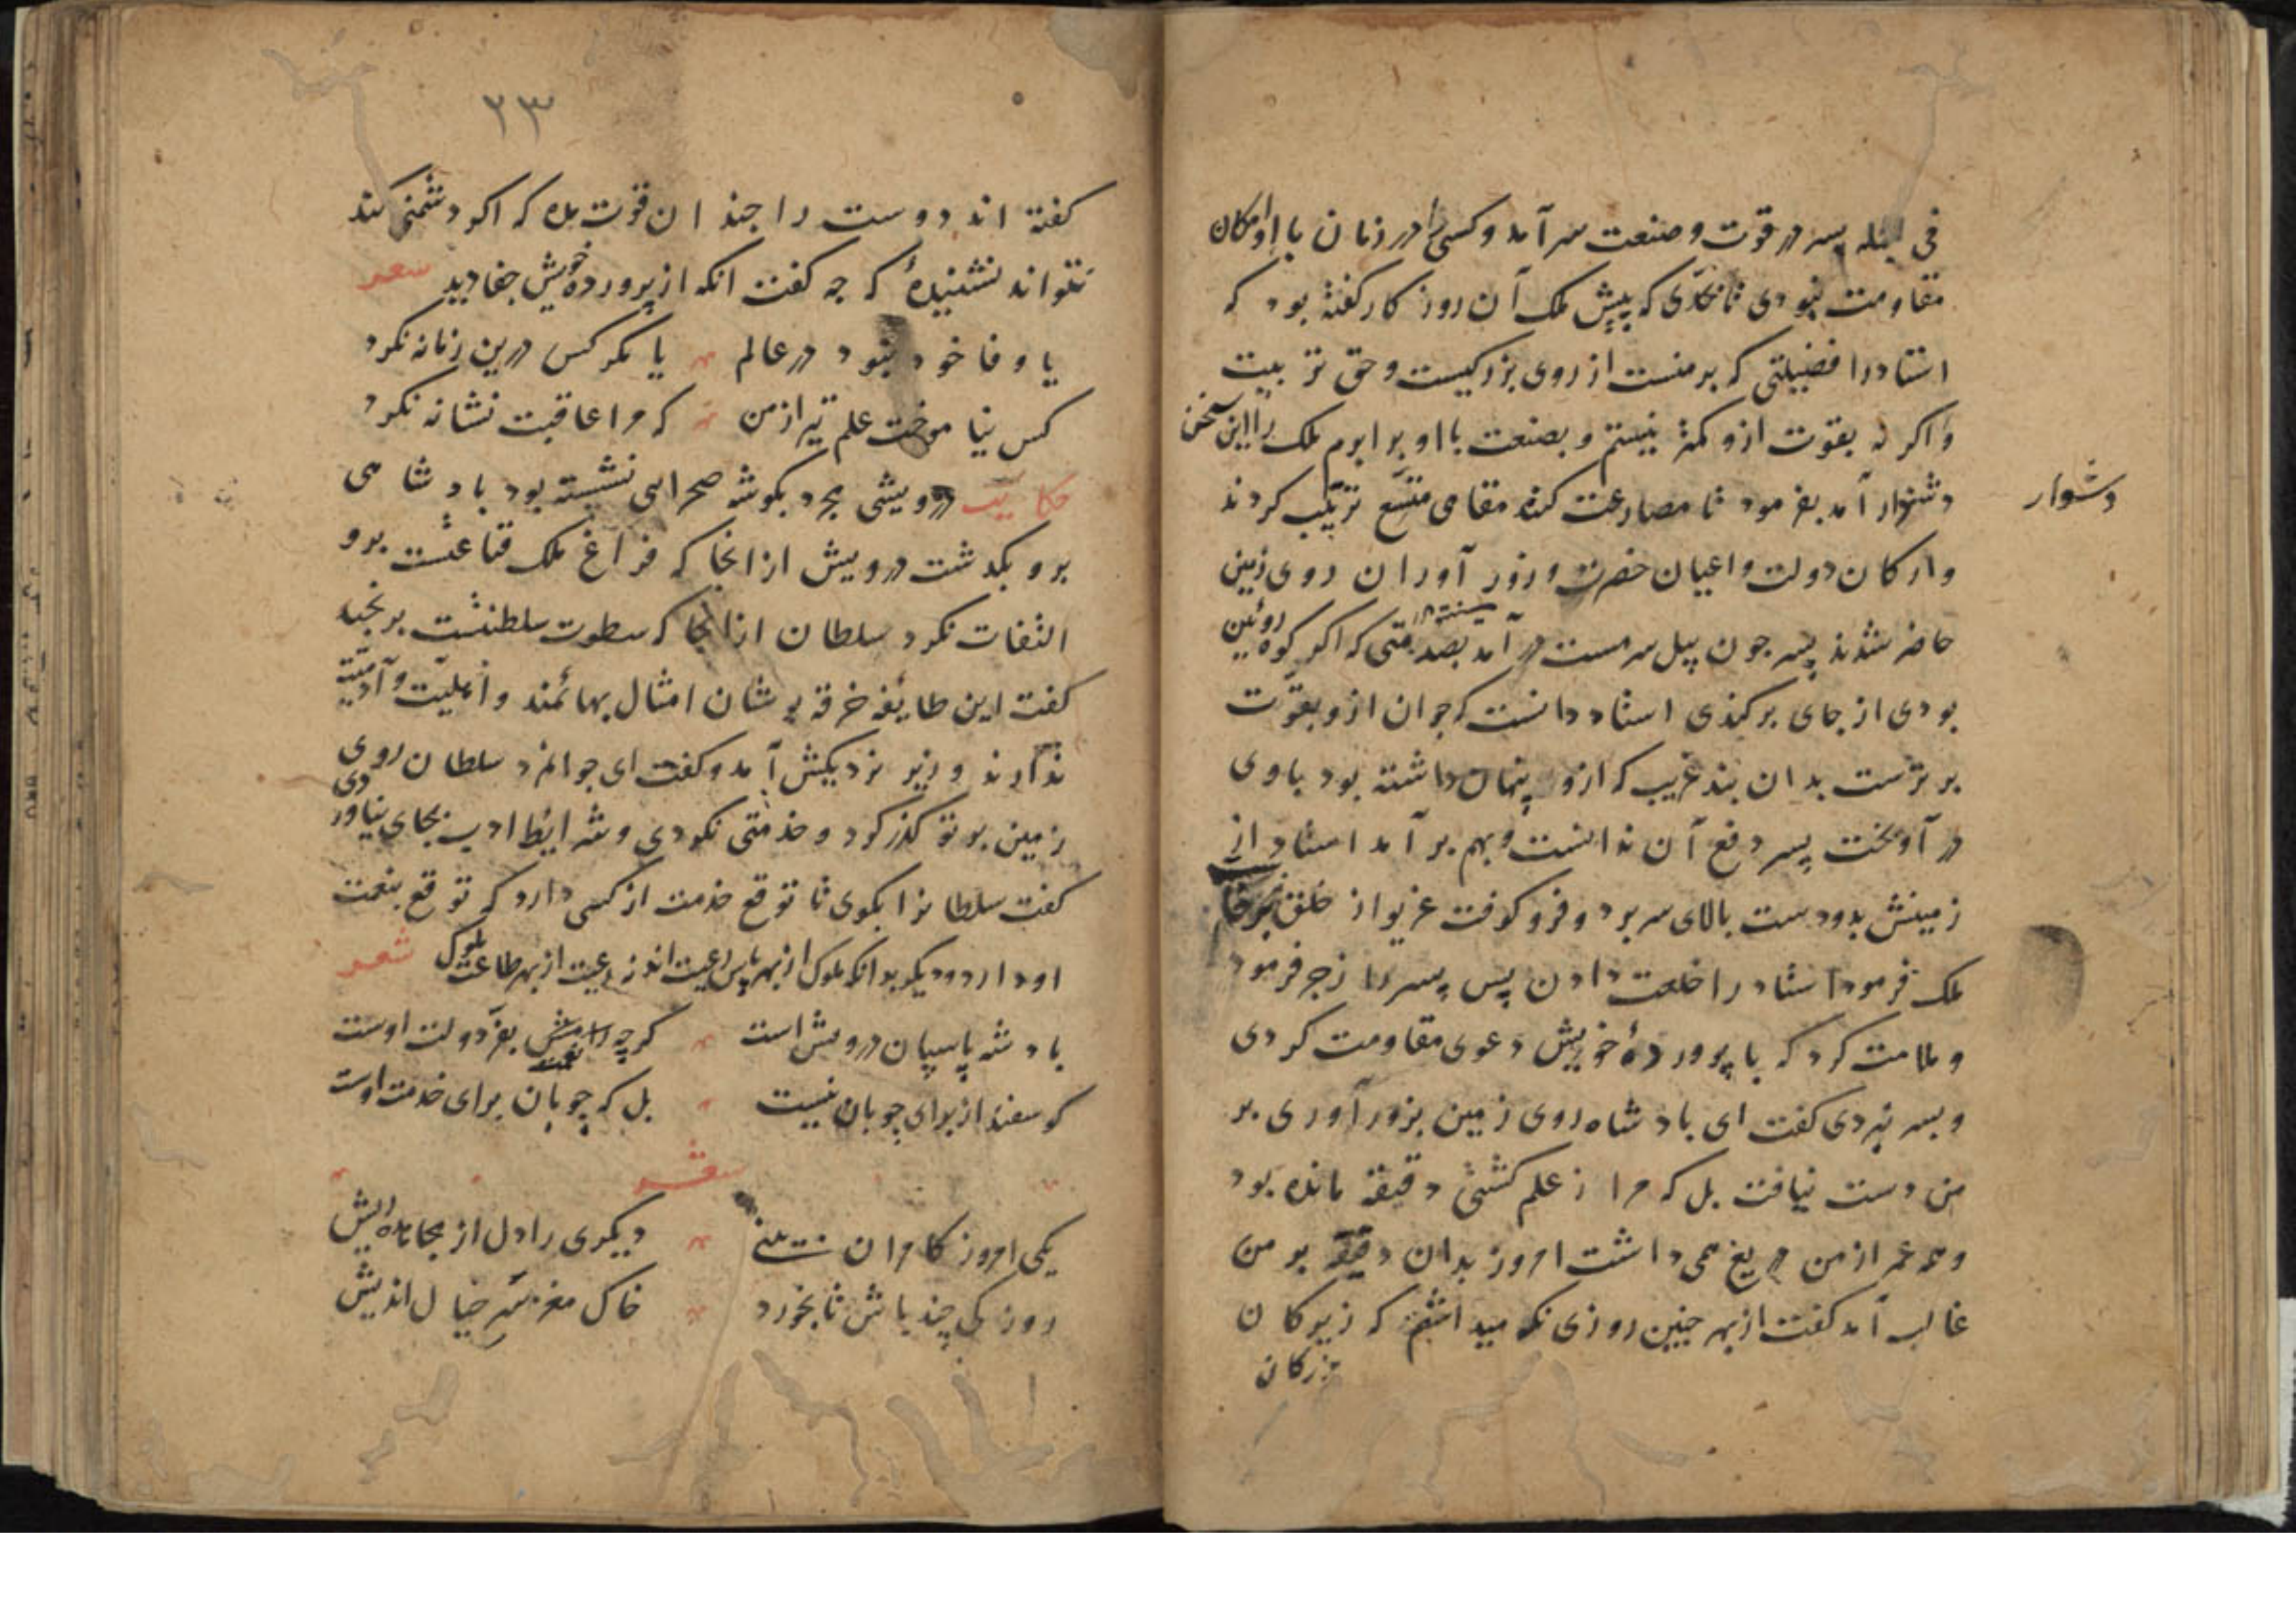 فی الجمله پسر در قوت و صنعت سر آمد و کسی را در زمان با او امکان
مقاومت نبودی تا بحدی که پیش ملک آن روزکار کفته بود که
استادرا فضیلتی که بر منست از روی بزرکیست و حق تربیت
و اکر نه بقوت ازو کمتر نیستم و بصنعت با او برابرم ملک را این سخن
دشوار آمد بفرمود تا مصارعت کنند مقامی متسع ترتیب کردند
دشوار
و ارکان دولت و اعیان حضرت و زور آوران روی زمین
حاضر شدند پسر جون پیل سر مست در آمد بصدمتی که اکر کوه روئین
بودی از جای برکندی استاد دانست که جوان ازو بقوّت
برترست بدان بند غریب که ازو پنهان داشته بود با وی
در آویخت پسر دفع آن ندانست و بهم بر آمد استاد از
زمینش بدو دست بالای سر برد و فرو کوفت غریو از خلق برخاست
ملک فرمود استاد را خلعت دادن پس پسر را زجر فرمود
و ملامت کرد که با پروردهٔ خویش دعوی مقاومت کردی
و بسر نبردی کفت ای بادشاه روی زمین بزور آوری بر
من دست نیافت بل که مرا ز علم کشتی دقیقه مانده بود
و همه عمر از من دریغ همی داشت امروز بدان دقیقه بر من
غالب آمد کفت از بهر جنین روزی نکه میداشتم که زیرکان
بزرکان
٢٣
کفته اند دوست را جندان قوت مده که اکر دشمنی کند
نتواند نشنیدهٔ که جه کفت انکه از پروردهٔ خویش جفا دید شعر
یا وفا خود نبود در عالم یا مکر کس درین زمانه نکرد
کس نیاموخت علم تیر از من که مرا عاقبت نشانه نکرد
حکایت درویشی مجرد بکوشه صحرایی نشسته بود بادشاهی
برو بکذشت درویش از انجا که فراغ ملک قناعتست برو
التفات نکرد سلطان از انجا که سطوت سلطنتست برنجید
کفت این طایفه خرقه پوشان امثال بهائمند و اهلیّت و آدمیّت
ندارند وزیر نزدیکش آمد و کفت ای جوانمرد سلطان روی
زمین بر تو کذر کرد و خدمتی نکردی و شرایط ادب بجای نیاوردی
کفت سلطانرا بکوی تا توقع خدمت از کسی دارد که توقع بنعمت
او دارد و دیکر بدانکه ملوک از بهر پاس رعیت اند نه رعیت از بهر طاعت ملوک شعر
بادشه پاسبان درویش است کرچه رامش بفرّ دولت اوست
نعمت
کوسفند از برای چوبان نیست بل که چوبان برای خدمت اوست
شعر
یکی امروز کامران بینی دیکری را دل از مجاهده ریش
روزکی چند باش تا بخورد خاک مغز سر خیال اندیش